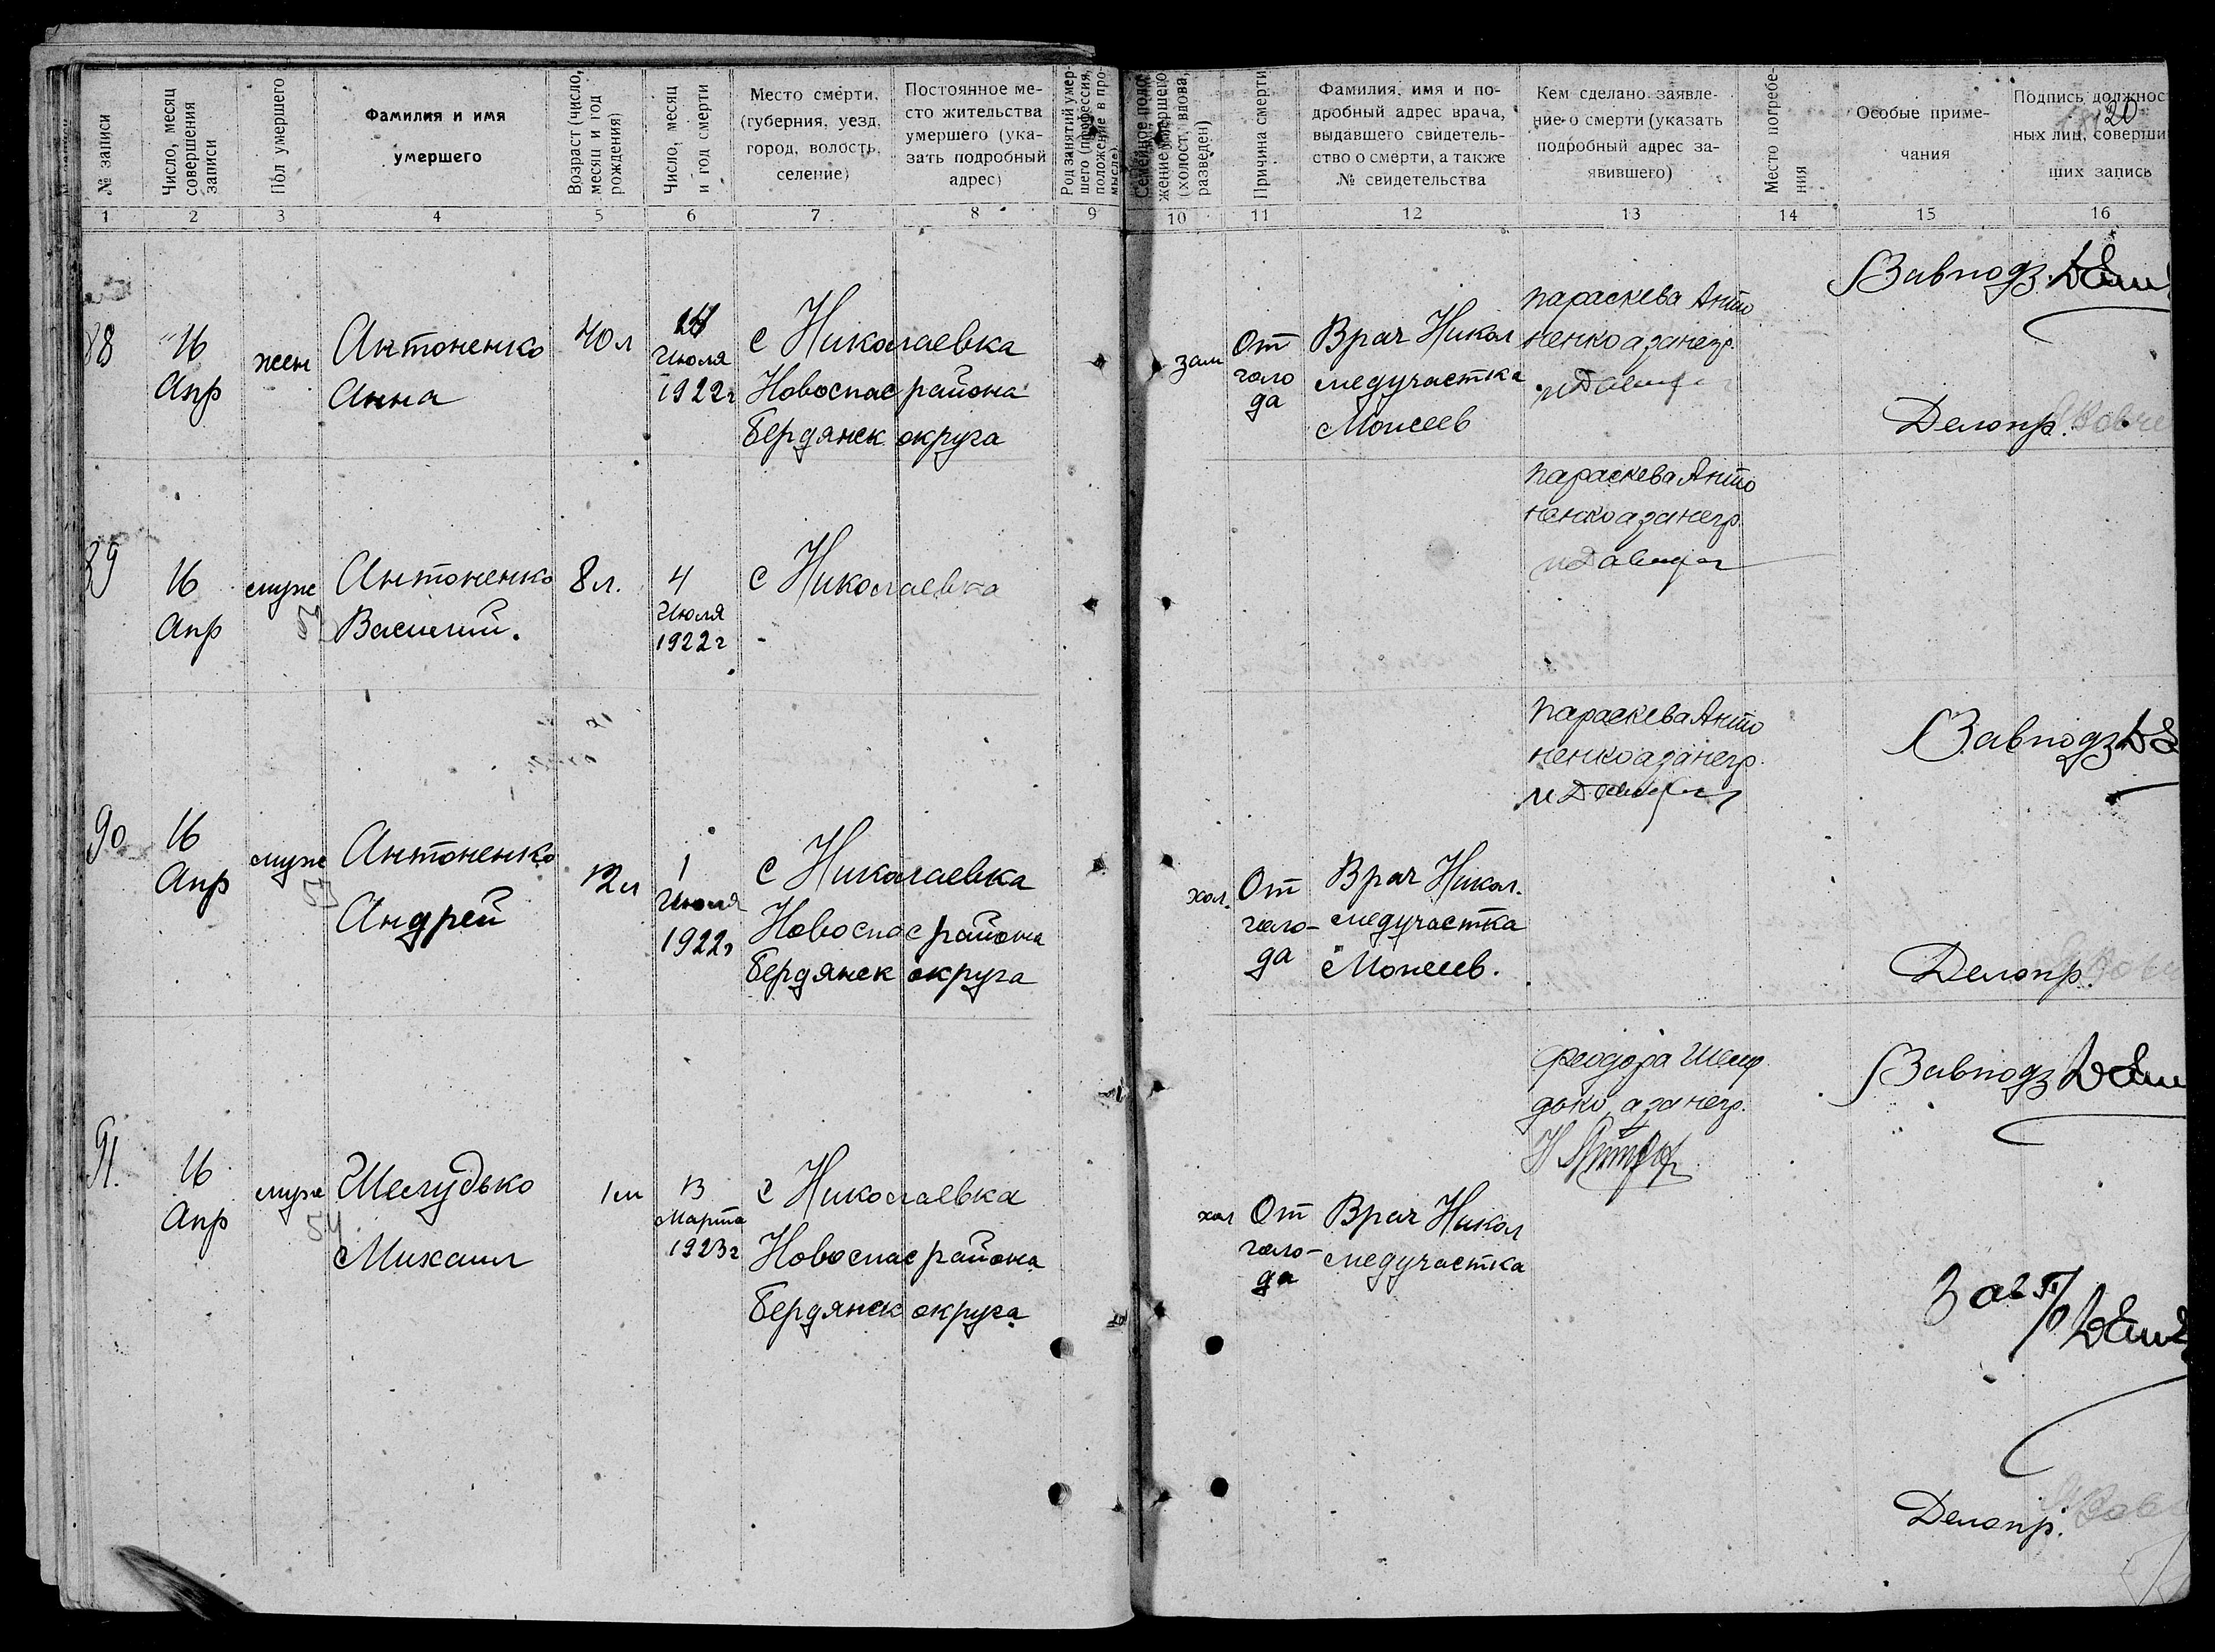 № записи
Число, месяц совершения записи
Пол умершего
Фамилия и имя
умершего
Возраст (число, месяц и год рождения)
Число, месяц и год смерти
Место смерти,
(губерния, уезд,
город, волость,
селение)
Постоянное ме-
сто жительства
умершего (ука-
зать подробный
адрес)
Род занятий умер-
шего (профессия,
положение в про-
мысле)
Семейное поло-
жение умершего
(холост, вдова,
разведен)
Причина смерти
Фамилия, имя и по-
дробный адрес врача,
выдавшего свидетель-
ство о смерти, а также
№ свидетельства
Кем сделано заявле-
ние о смерти (указать
подробный адрес за-
явившего)
Место погребе-
ния
Особые приме-
чания
Подпись должнос
ных лиц, соверши
ших запись
20
1 2 3 4 5 6 7 8 9 10 11 12 13 14 15 16
88
16
Апр
жен
Антоненко
Анна
40 л
Июля
1922г
с Николаевка
Новоспас района
Бердянск округа
зам
От
голо
да
Врач Никол
медучастка
Моисеев
Параскева Анто
ненко а за негр.
Завподз.
Делопр.
89
16
Апр
муж
Антоненко
Василий.
8 л.
4
Июля
1922 г
с Николаевка
Параскева Анто
ненко а за негр.
90
16
Апр
муж
Антоненко
Андрей
12 л
1
Июля
1922г
с Николаевка
Новоспас района
Бердянск округа
хол.
От
голо-
да
Врач Никол.
медучастка
Моисеев.
Параскева Анто
ненко а за негр.
Завподз
Делопр.
91.
16
Апр
муж
54
Шелудько
Михаил
1 м
13
Марта
1923 г
с Николаевка
Новоспас района
Бердянск округа
хол
От
голо-
да
Врач Никол
медучастка
Феодора Шелу
дько а за негр.
Завподз
Зав П/
Делопр.